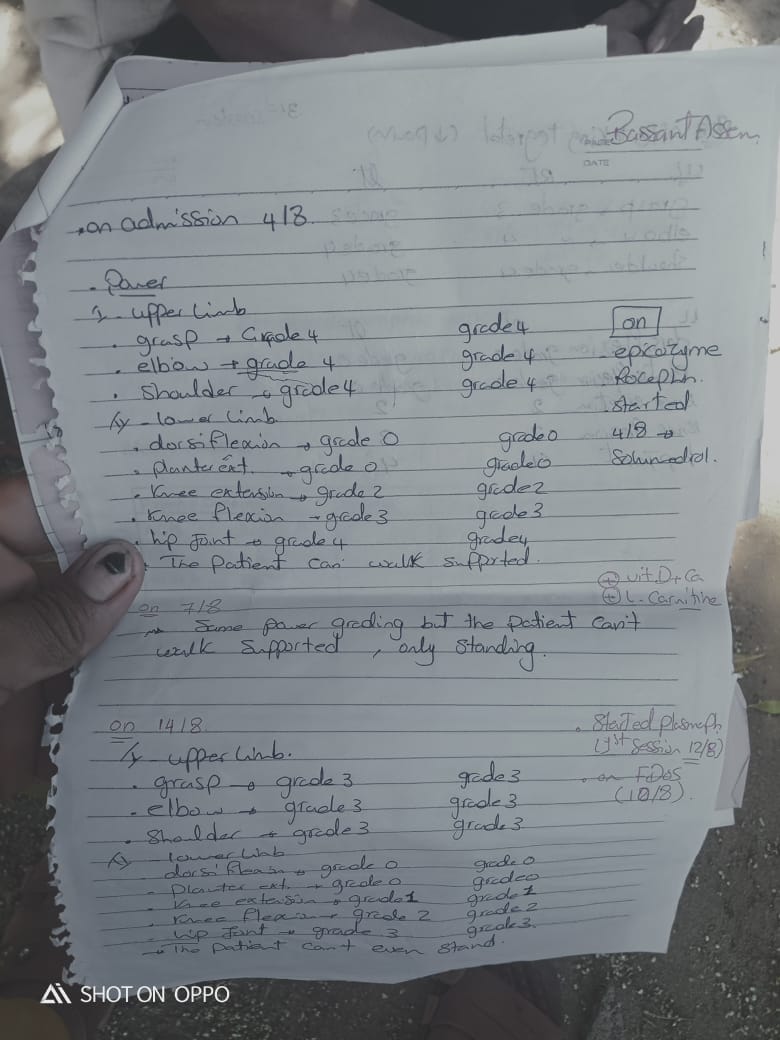 Bassant Assem
DATE
. on admission 4/8.
. Power
1 - upper limb
. grasp → Grade 4 grade 4 on
. elbow → grade 4 grade 4 epicozyme
. Shoulder → grade 4 grade 4 Rocephn.
- lower limb started
. dorsiflexion → grade 0 grade 0 4/8 →
. planter ext. → grade 0 grade 0 Solumedrol.
. Knee extension → grade 2 grade 2
. Knee flexion → grade 3 grade 3
. hip joint → grade 4 grade 4
. The patient can walk supported.
⊕ vit. D + Ca
on 7/8 ⊕ L. Carnitine
→ Same power grading but the patient can't
walk supported, only standing.
on 14/8. . Started plasmaph.
- upper limb. (1st session 12/8)
. grasp → grade 3 grade 3 . on
. elbow → grade 3 grade 3
. Shoulder → grade 3 grade 3
- lower limb
dorsi flexion → grade 0 grade 0
- Planter ext. → grade 0 grade 0
- Knee extension → grade 1 grade 1
- Knee flexion → grade 2 grade 2
- hip joint → grade 3 grade 3.
→ The patient can't even stand.
SHOT ON OPPO